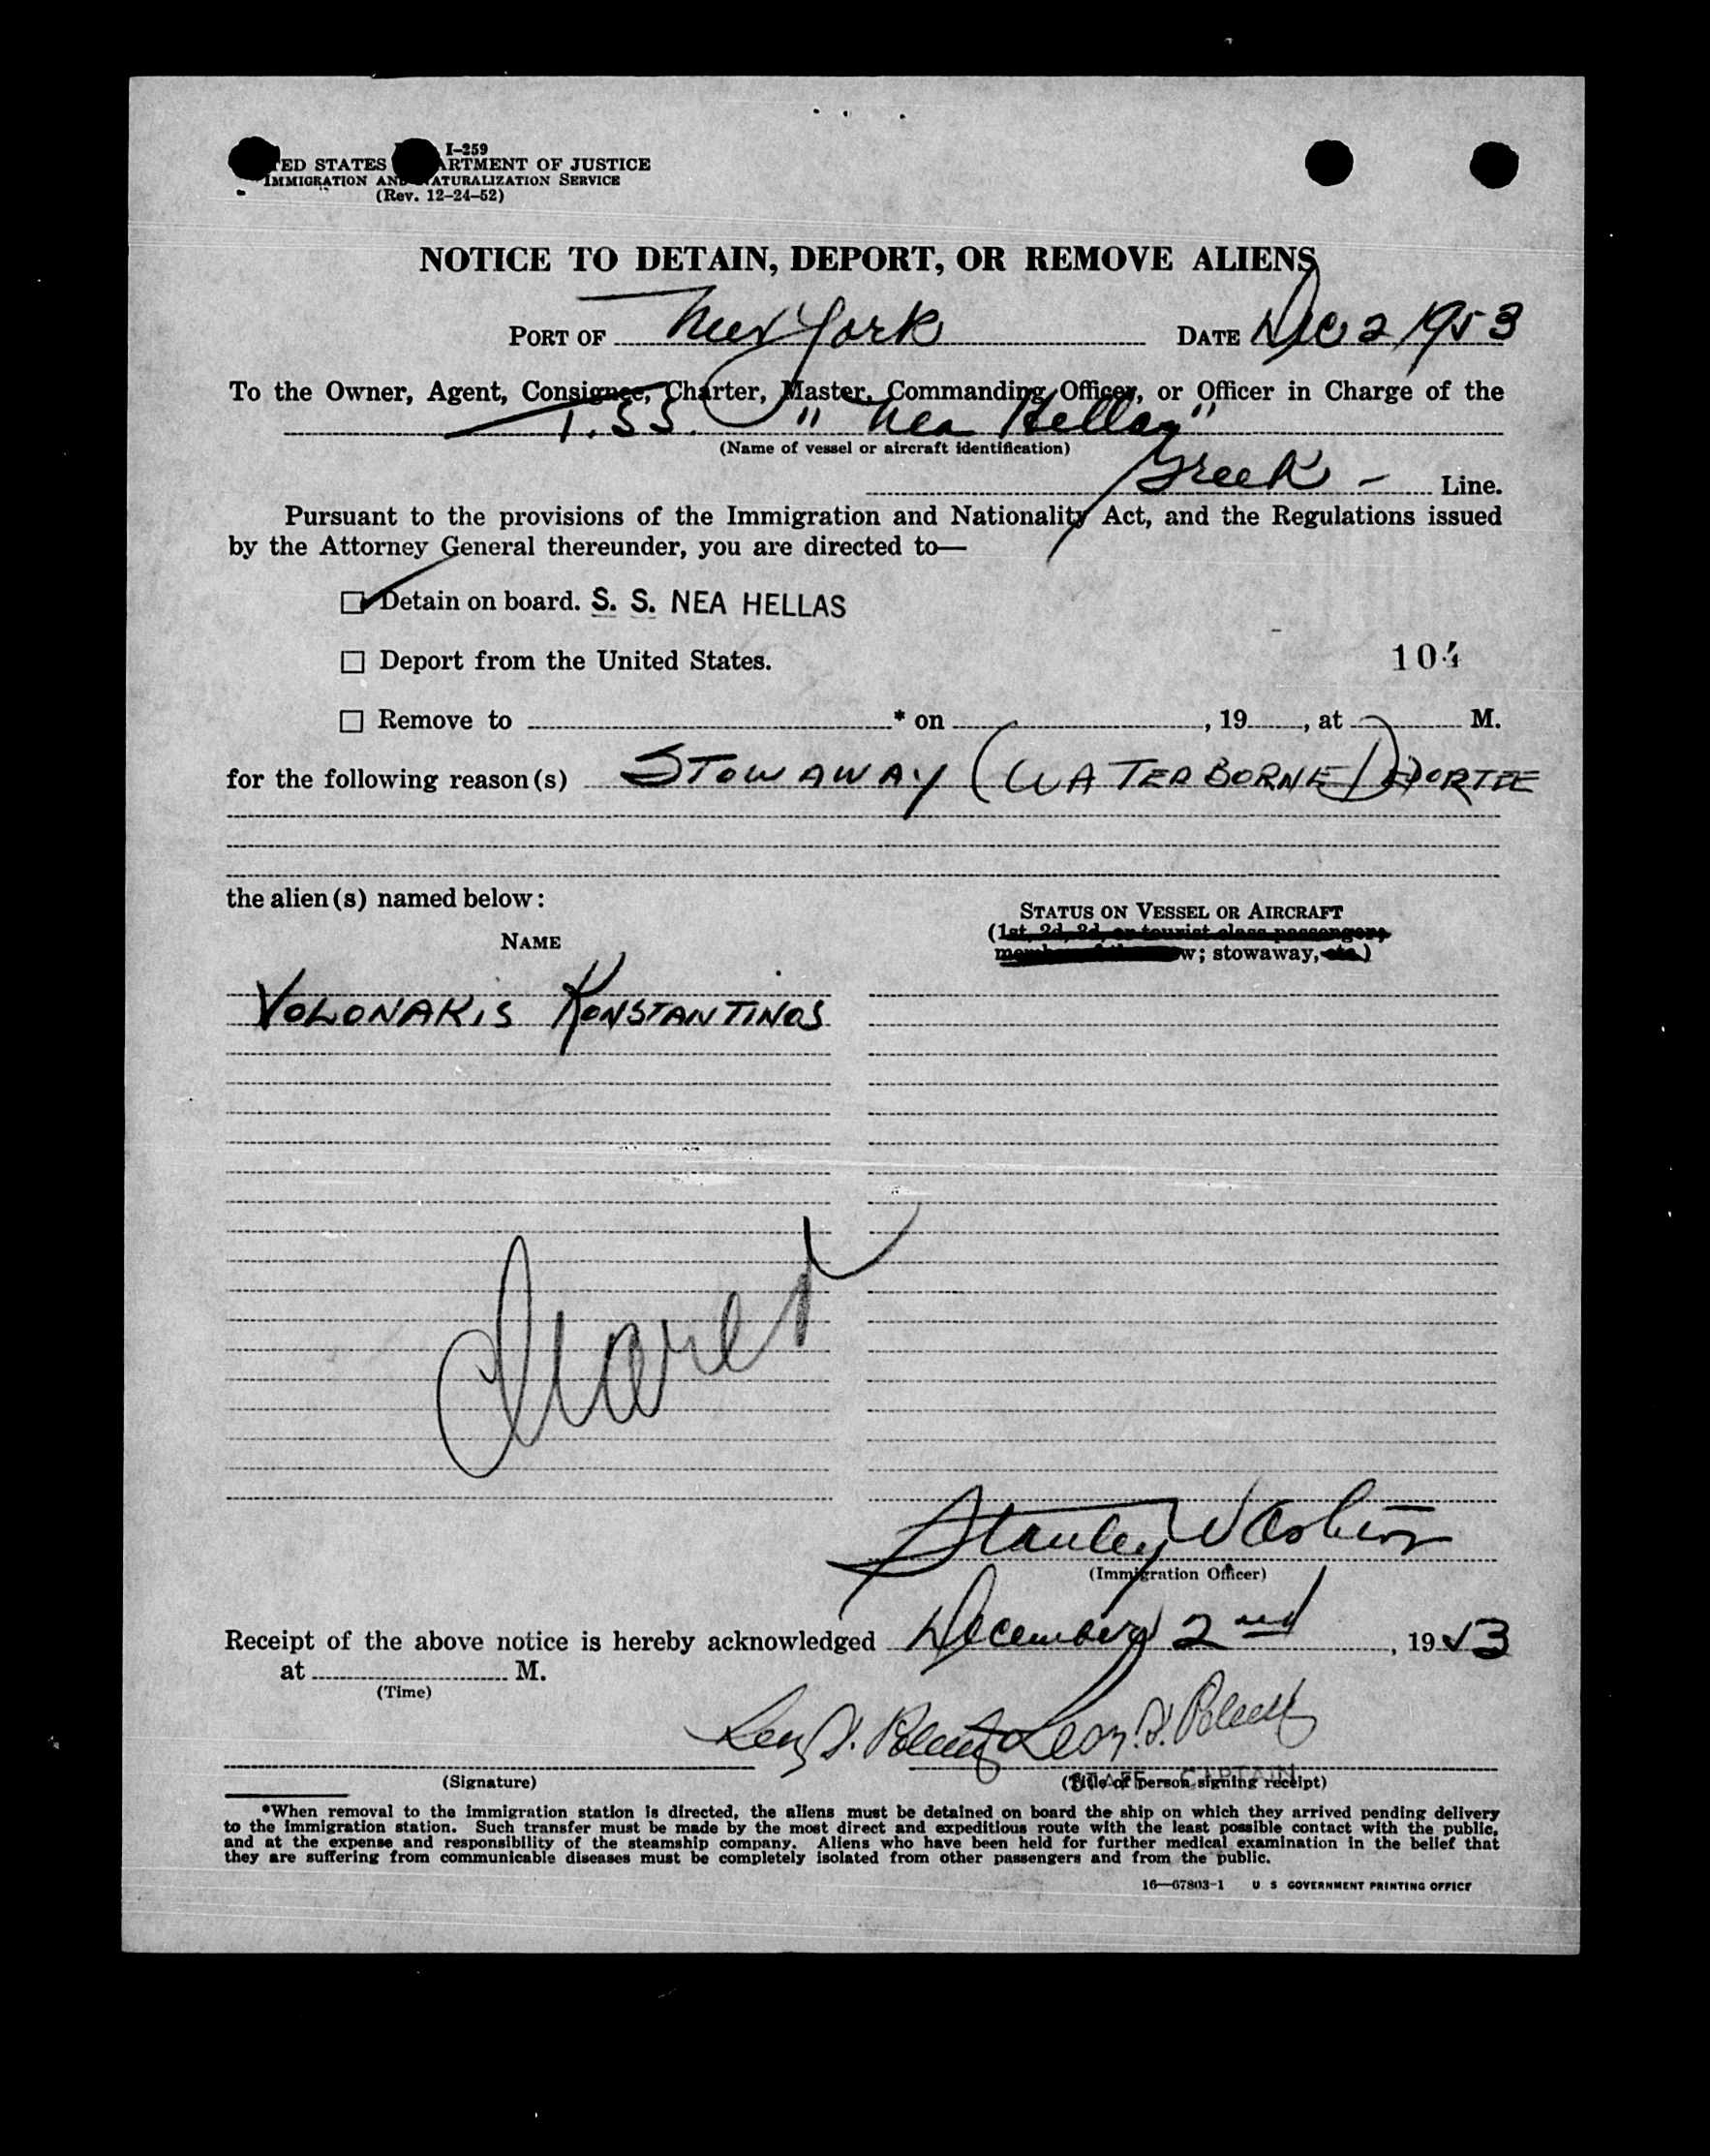 I-259
ED STATES ARTMENT OF JUSTICE
IMMIGRATION AND NATURALIZATION SERVICE
(Rev. 12-24-52)
NOTICE TO DETAIN, DEPORT, OR REMOVE ALIENS
PORT OF New York DATE Dec 2 1953
To the Owner, Agent, Consignee, Charter, Master, Commanding Officer, or Officer in Charge of the
T.SS. "Nea Hellas"
(Name of vessel or aircraft identification)
Greek - Line.
Pursuant to the provisions of the Immigration and Nationality Act, and the Regulations issued
by the Attorney General thereunder, you are directed to—
Detain on board. S. S. NEA HELLAS
Deport from the United States. 104
Remove to * on , 19 , at M.
for the following reason(s) STOWAWAY (WATERBORNE) DEPORTEE
the alien(s) named below:
STATUS ON VESSEL OR AIRCRAFT
(1st, 2d, 3d, or tourist class passenger;
NAME
w; stowaway, etc.)
VOLONAKIS KONSTANTINOS
Stanley
(Immigration Officer)
Receipt of the above notice is hereby acknowledged December 2nd, 1953
at M.
(Time)
(Signature)
STAFF CAPTAIN
(Title of person signing receipt)
*When removal to the immigration station is directed, the aliens must be detained on board the ship on which they arrived pending delivery
to the immigration station. Such transfer must be made by the most direct and expeditious route with the least possible contact with the public,
and at the expense and responsibility of the steamship company. Aliens who have been held for further medical examination in the belief that
they are suffering from communicable diseases must be completely isolated from other passengers and from the public.
16—67803-1 U S GOVERNMENT PRINTING OFFICE